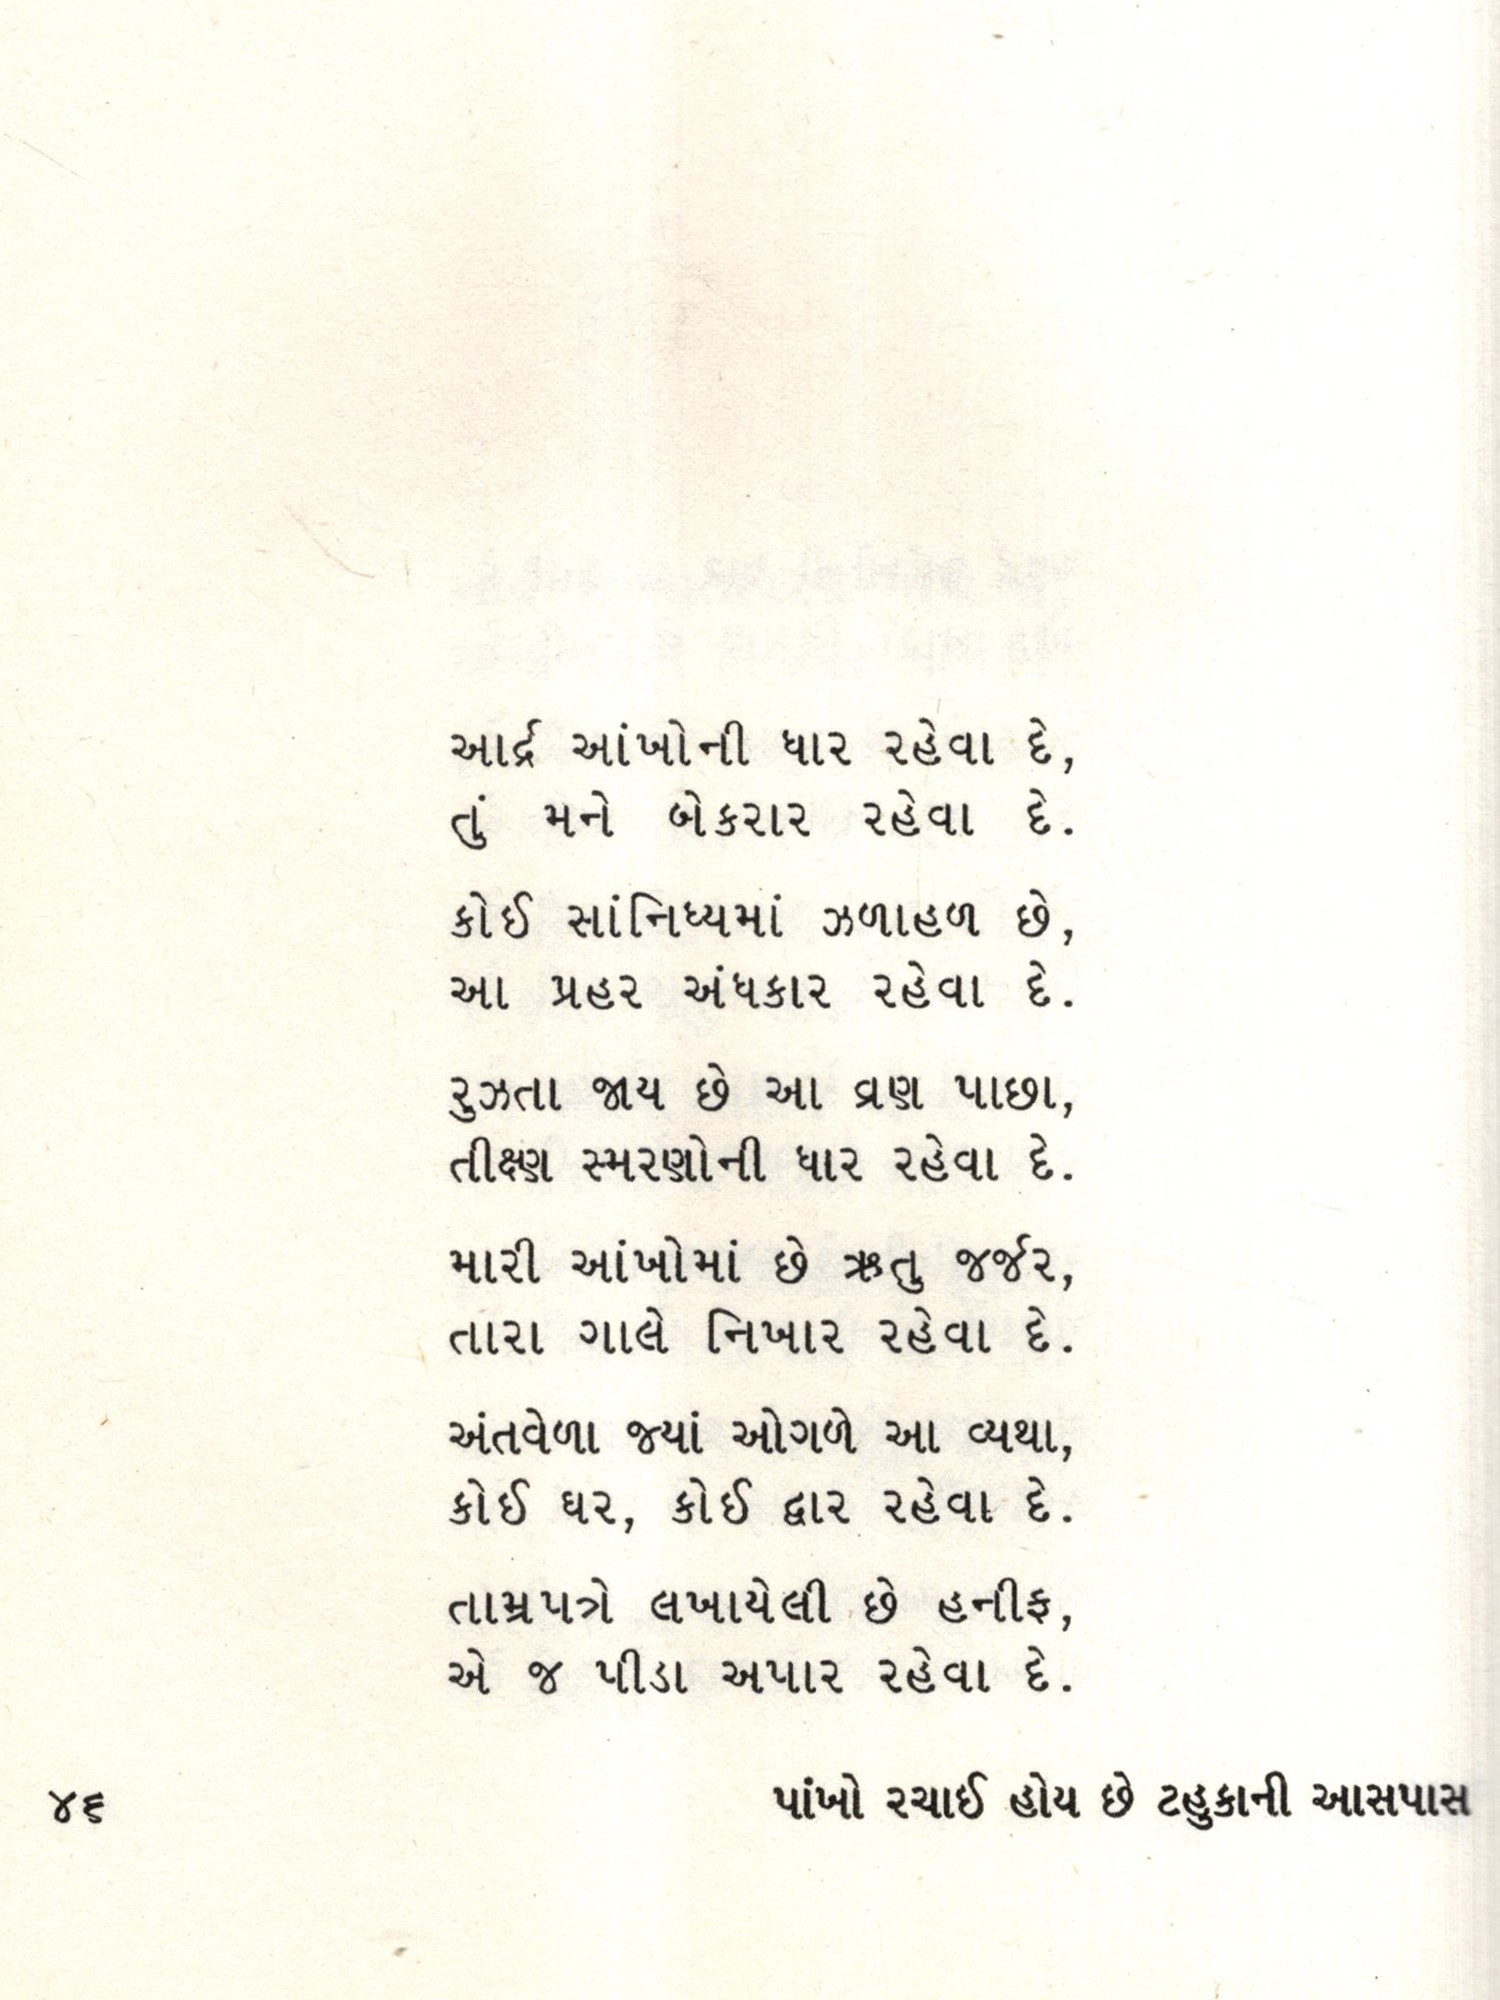 આર્દ્ર આંખોની ધાર રહેવા દે,
તું મને બેકરાર રહેવા દે.
કોઈ સાંનિધ્યમાં ઝળાહળ છે,
આ પ્રહર અંધકાર રહેવા દે.
રુઝતા જાય છે આ વ્રણ પાછા,
તીક્ષ્ણ સ્મરણોની ધાર રહેવા દે.
મારી આંખોમાં છે ઋતુ જર્જર,
તારા ગાલે નિખાર રહેવા દે.
અંતવેળા જ્યાં ઓગળે આ વ્યથા,
કોઈ ઘર, કોઈ દ્વાર રહેવા દે.
તામ્રપત્રે લખાયેલી છે હનીફ,
એ જ પીડા અપાર રહેવા દે.
૪૬ પાંખો રચાઈ હોય છે ટહુકાની આસપાસ